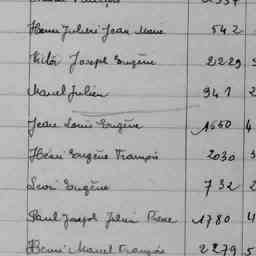 Henri Julien Jean Marie 542
Victor Joseph Eugène 2229
Marcel Julien 941 2
Jean Louis Eugène 1650 4
Henri Eugène François 2030 5
Léon Eugène 732 2
Paul Joseph Julien Pierre 1780 4
Henri Marcel François 2279 5